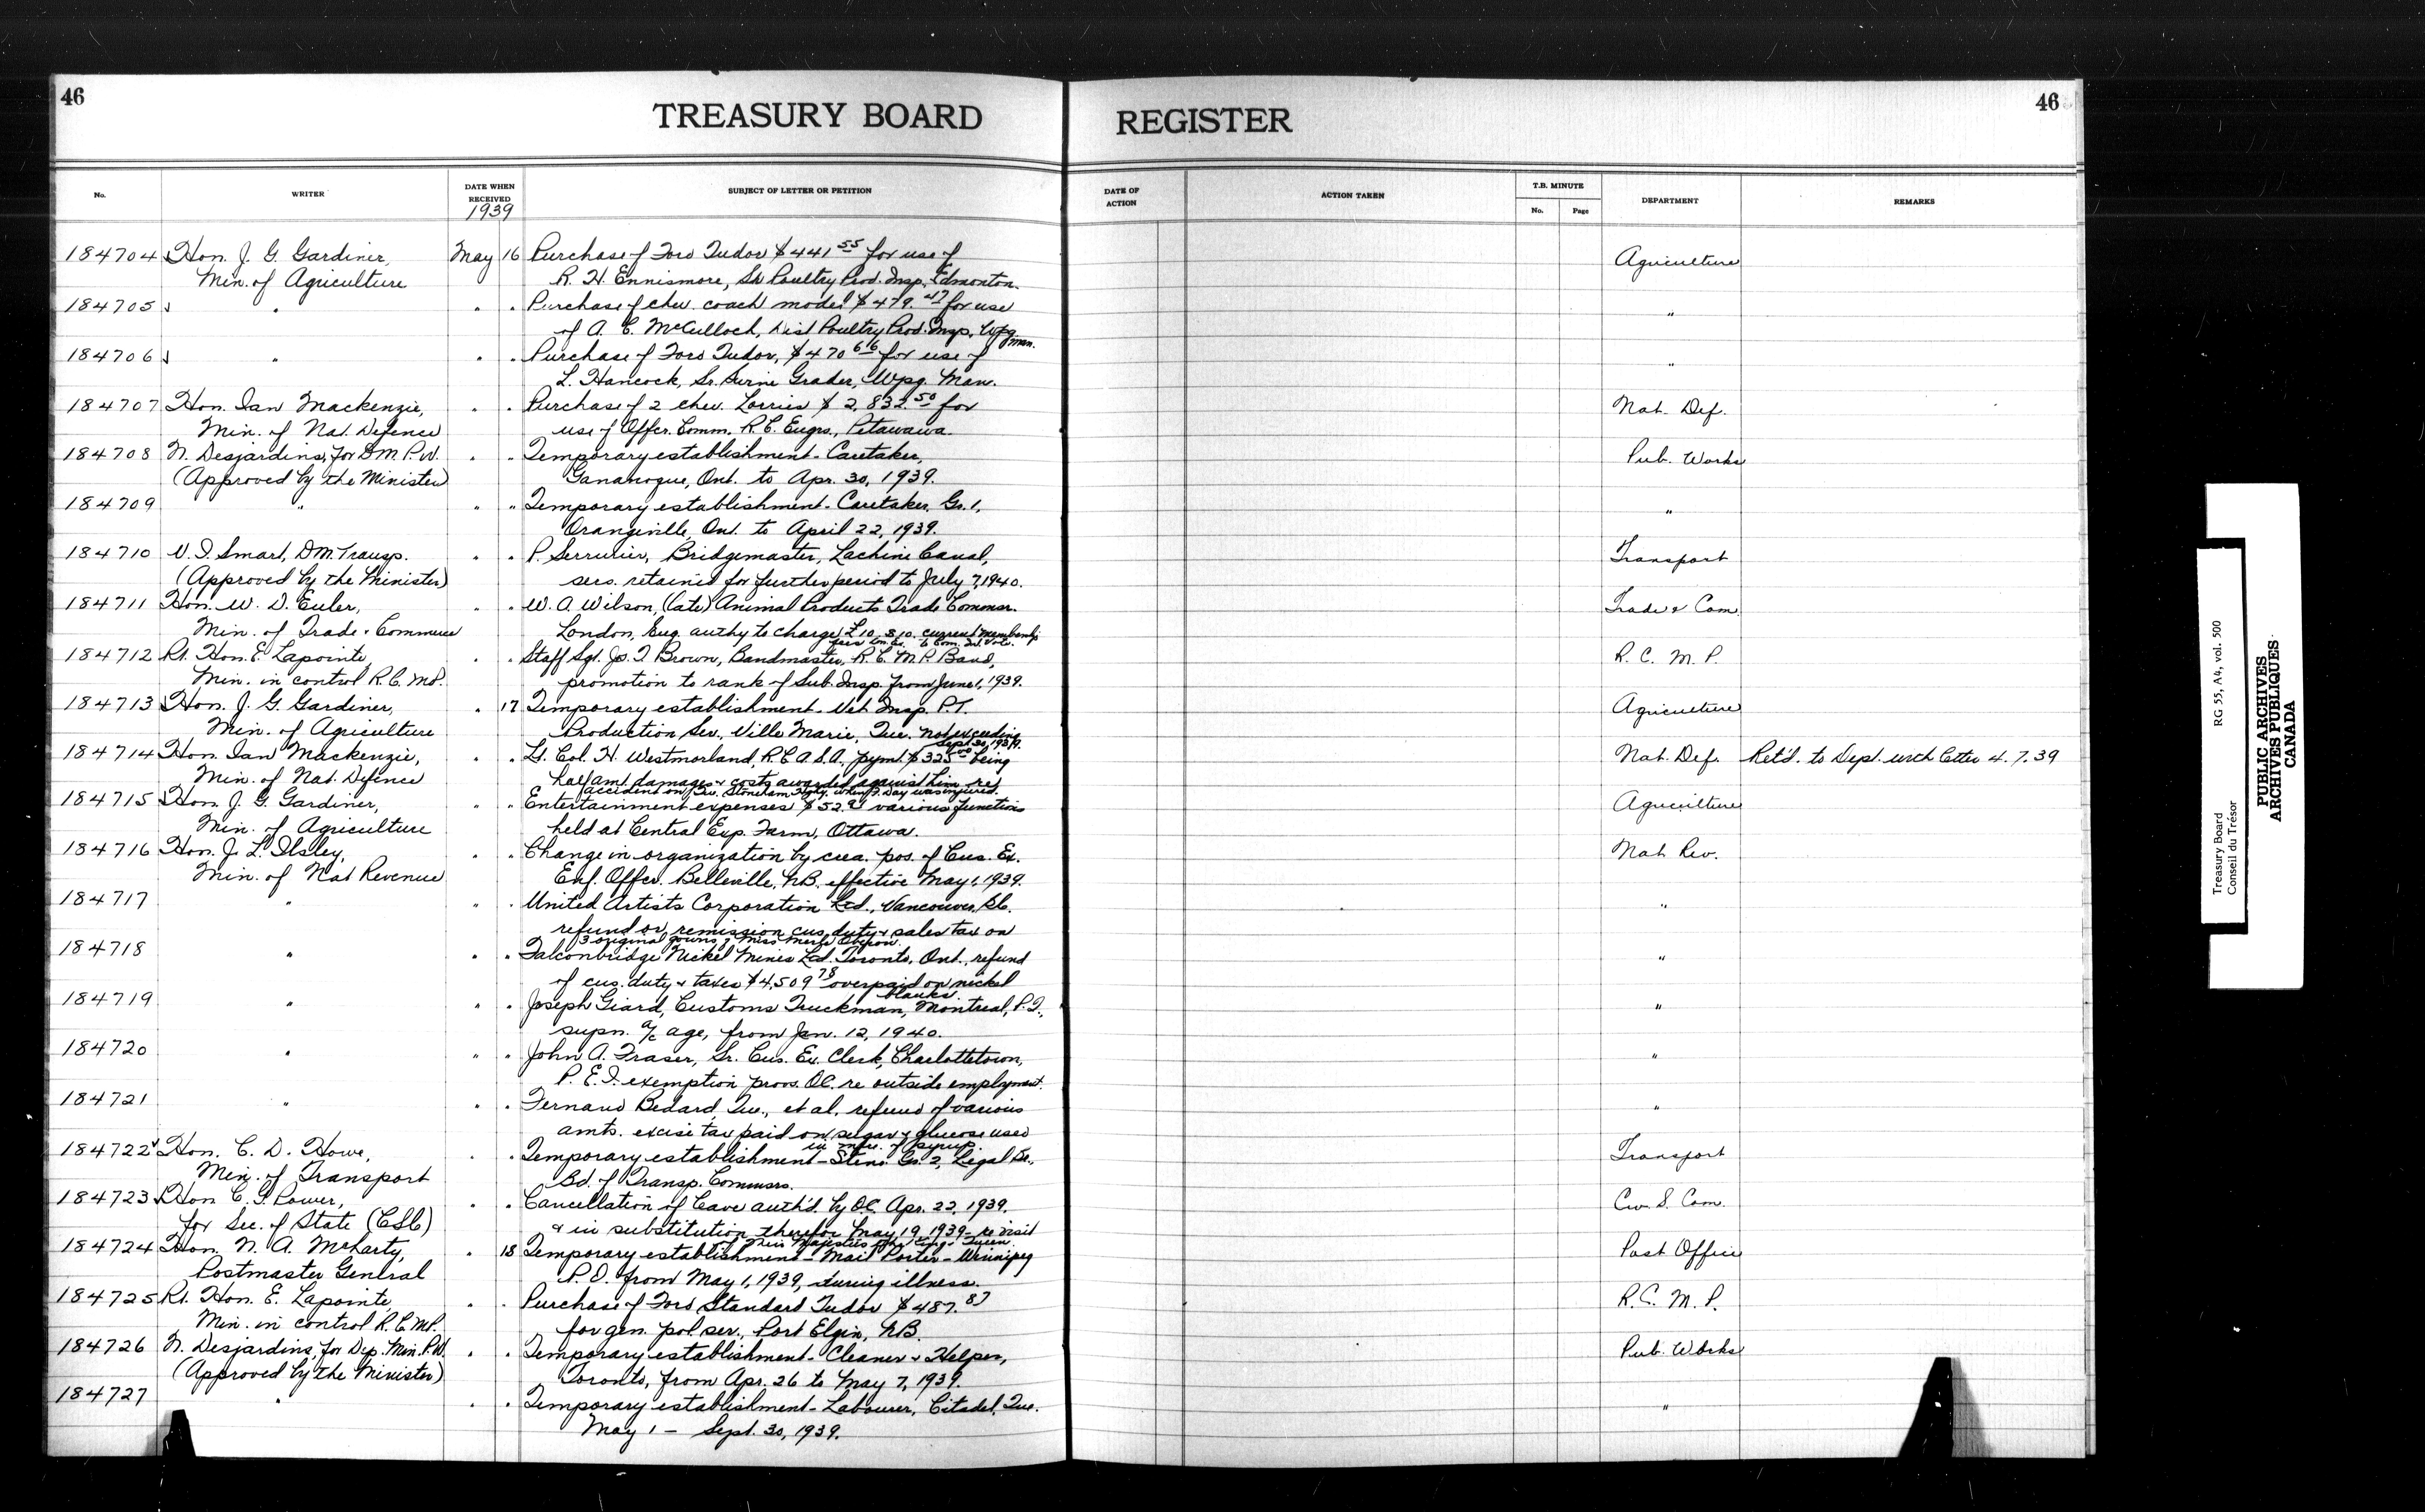 46
TREASURY BOARD REGISTER
46
No.
WRITER
DATE WHEN RECEIVED
1939
SUBJECT OF LETTER OR PETITION
DATE OF ACTION
ACTION TAKEN
T.B. MINUTE
No.
Page
DEPARTMENT
REMARKS
184704 Hon. J. G. Gardiner, May 16 Purchase of Ford Tudor $441 55 for use of Agriculture
Min. of Agriculture R. H. Ennismore, Sr. Poultry Prod. Insp. Edmonton.
184705 " " " Purchase of chev. coach model $479. 47 for use "
of A. C. McCulloch, Dist Poultry Prod. Insp. Wpg Man.
184706 " " " Purchase of Ford Tudor, $470 66 for use of "
L. Hancock, Sr. Swine Grader, Wpg. Man.
184707 Hon. Ian Mackenzie, " " Purchase of 2 chev. Lorries $2,832.50 for Nat. Def.
Min. of Nat. Defence use of Offcr. Comm. R.C. Engrs., Petawawa.
184708 N. Desjardins, for D.M. P.W. " " Temporary establishment - Caretaker, Pub. Works
(Approved by the Minister) Gananoque, Ont. to Apr. 30, 1939.
184709 " " " Temporary establishment - Caretaker, Gr. 1, "
Orangeville, Ont. to April 22, 1939.
184710 V. I. Smart, DM. Transp. " " P. Serrulier, Bridgemaster, Lachine Canal, Transport
(Approved by the Minister) secs. retained for further period to July 7, 1940.
184711 Hon. W. D. Euler, " " W. A. Wilson, (late) Animal Products Trade Commsr. Trade & Com.
Min. of Trade & Commerce London, Eng. authy to charge £10. 810. current membership
184712 Rt. Hon. E. Lapointe, " " Staff Sgt. Jos. T. Brown, Bandmaster, R.C.M.P. Band, R. C. M. P.
Min. in control R.C.M.P. promotion to rank of Sub. Insp. from June 1, 1939.
184713 Hon. J. G. Gardiner, " 17 Temporary establishment - Vet. Insp. P.T. Agriculture
Min. of Agriculture Production Ser., Ville Marie, Que. not exceeding
Sept. 30, 1939.
184714 Hon. Ian Mackenzie, " " Lt. Col. H. Westmorland, R.C.A.S.A., pymt. $325 00 being Nat. Def. Ret'd. to Dept. with letter 4. 7. 39
Min. of Nat. Defence half amt. damages & costs awarded against him re
accident on Que. Stoneham Hgwy. when P. Day was injured.
184715 Hon. J. G. Gardiner, " " Entertainment expenses $52.91 various functions Agriculture
Min. of Agriculture held at Central Exp. Farm, Ottawa.
184716 Hon. J. L. Ilsley, " " Change in organization by crea. pos. of Cus. Ex. Nat. Rev.
Min. of Nat Revenue Enf. Offcr. Belleville, N.B. effective May 1, 1939.
184717 " " " United Artists Corporation Ltd., Vancouver, B.C. "
refund or remission cus. duty & sales tax on
3 original gowns of Miss Merle Oberon.
184718 " " " Falconbridge Nickel Mines Ltd. Toronto, Ont., refund "
of cus. duty & taxes $4,509 78 overpaid on nickel
blanks
184719 " " " Joseph Giard, Customs Truckman, Montreal, P.Q., "
supn. a/c age, from Jan. 12, 1940.
184720 " " " John A. Fraser, Sr. Cus. Ex. Clerk, Charlottetown, "
P.E.I. exemption provs. O.C. re outside employment.
184721 " " " Fernand Bedard, Que., et al, refund of various "
amts. excise tax paid on sugar & glucose used
in mfre. of syrup.
184722 Hon. C. D. Howe, " " Temporary establishment - Steno. Gr. 2, Legal Br., Transport
Min. of Transport Bd. of Transp. Commsrs.
184723 Hon C. G. Power, " " Cancellation of leave auth'd. by O.C. Apr. 22, 1939. Civ. S. Com.
for Sec. of State (CSC) & in substitution therefor May 19, 1939 - re visit
of Their Majesties the King & Queen.
184724 Hon. N. A. McLarty, " 18 Temporary establishment - Mail Porter - Winnipeg Post Office
Postmaster General P.O. from May 1, 1939, during illness.
184725 Rt. Hon. E. Lapointe, " " Purchase of Ford Standard Tudor $487. 87 R.C.M.P.
Min. in control R.C.M.P. for gen. pol. ser., Port Elgin, N.B.
184726 N. Desjardins, for Dep. Min. P.W. " " Temporary establishment - Cleaner & Helper, Pub. Works
(Approved by the Minister) Toronto, from Apr. 26 to May 7, 1939.
184727 " " " Temporary establishment - Labourer, Citadel, Que. "
May 1 - Sept. 30, 1939.
Treasury Board RG 55, A4, vol. 500
Conseil du Trésor
PUBLIC ARCHIVES
ARCHIVES PUBLIQUES
CANADA